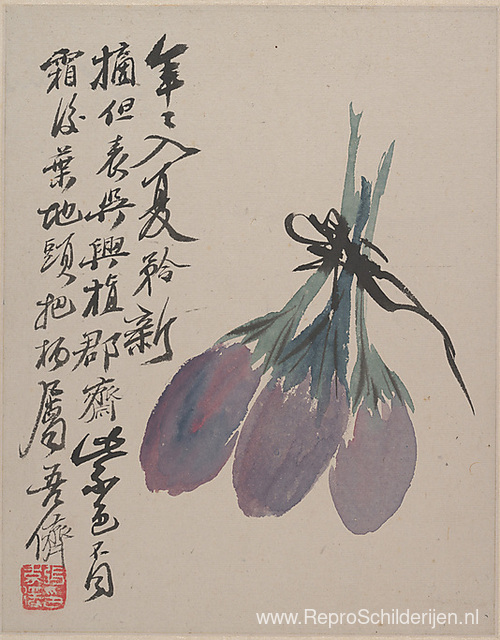 年〻入夏矜新
摘但表與興植郡齋紫色不同
霜後葉地頭把柄屬吾儕
www.ReproSchilderijen.nl